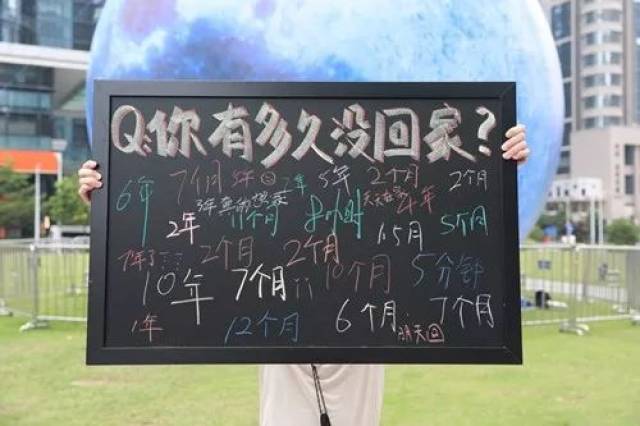 Q:你有多久没回家?
6年 7个月 5年 2年 5年 2个月 2个月
2年 3年真的想家 11个月 8小时 天天在家 4年
1.5月 5个月
1年了... 2个月 2个月
10年 7个月 10个月 5分钟
1年 12个月 6个月 明天回 7个月